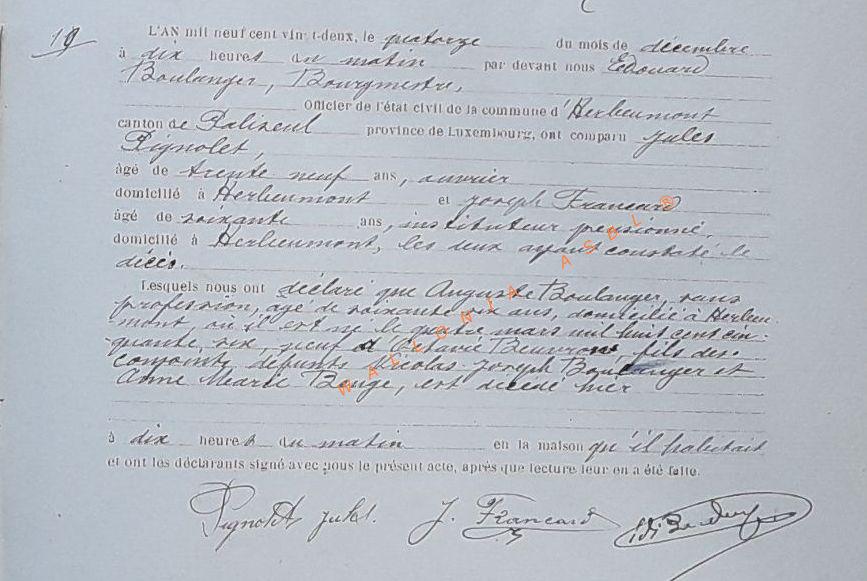 19
L'AN mil neuf cent vin t-deux, le quatorze du mois de décembre
à dix heures du matin par devant nous Edouard
Boulanger, Bourgmestre,
Officier de l'état civil de la commune d'Herbeumont
canton de Paliseul province de Luxembourg, ont comparu Jules
Pignolet,
âgé de trente neuf ans, ouvrier
domicilié à Herbeumont et Joseph Francard
âgé de soixante ans, instituteur pensionné,
domicilié à Herbeumont, les deux ayant constaté le
décès.
Lesquels nous ont déclaré que Auguste Boulanger, sans
profession, âgé de soixante six ans, domicilié à Herbeu-
mont, où il est né le quatre mars mil huit cent cin-
quante six, veuf d'Octavie Beuvron, fils des
conjoints défunts Nicolas-Joseph Boulanger et
Anne Marie Bouge, est décédé hier
à dix heures du matin en la maison qu'il habitait
et ont les déclarants signé avec nous le présent acte, après que lecture leur en a été faite.
Pignolet Jules. J. Francard Ed. Boulanger
WALLONIA ASBL ®